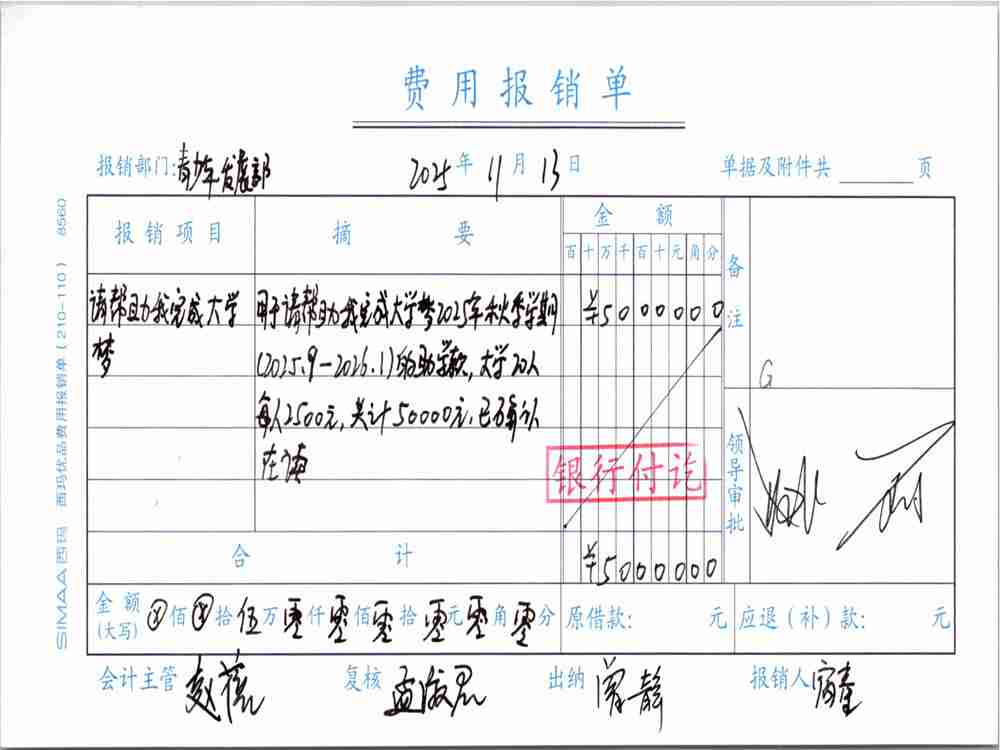 费用报销单
报销部门:青少年发展部 2025年11月13日 单据及附件共 页
报销项目 摘要 金额 备注
百十万千百十元角分
请帮助我完成大学梦
用于请帮助我完成大学梦2025年秋季学期
(2025.9-2026.1)的助学款,大学20人
每人2500元,共计50000元,已确认
在读
¥5000000
G
银行付讫
领导审批
合计 ¥5000000
金额(大写) ⊗佰⊗拾伍万零仟零佰零拾零元零角零分 原借款: 元 应退(补)款: 元
会计主管 赵 复核 孟 出纳 曾静 报销人
SIMAA西玛 西玛优品费用报销单(210-110) 8560